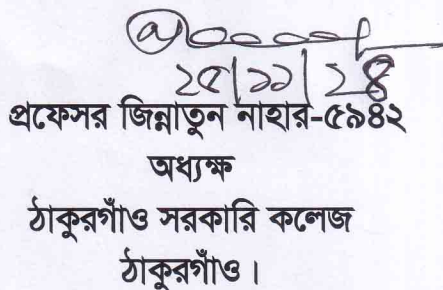 ২৫|১১|২৪
প্রফেসর জিন্নাতুন নাহার-৫৯৪২
অধ্যক্ষ
ঠাকুরগাঁও সরকারি কলেজ
ঠাকুরগাঁও।